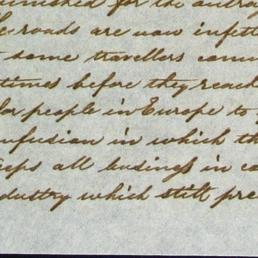 for the outrag
roads are now infest
some travellers
times before they reach
for people in Europe to
nfusion in which th
eeps all business in co
dustry which still pre